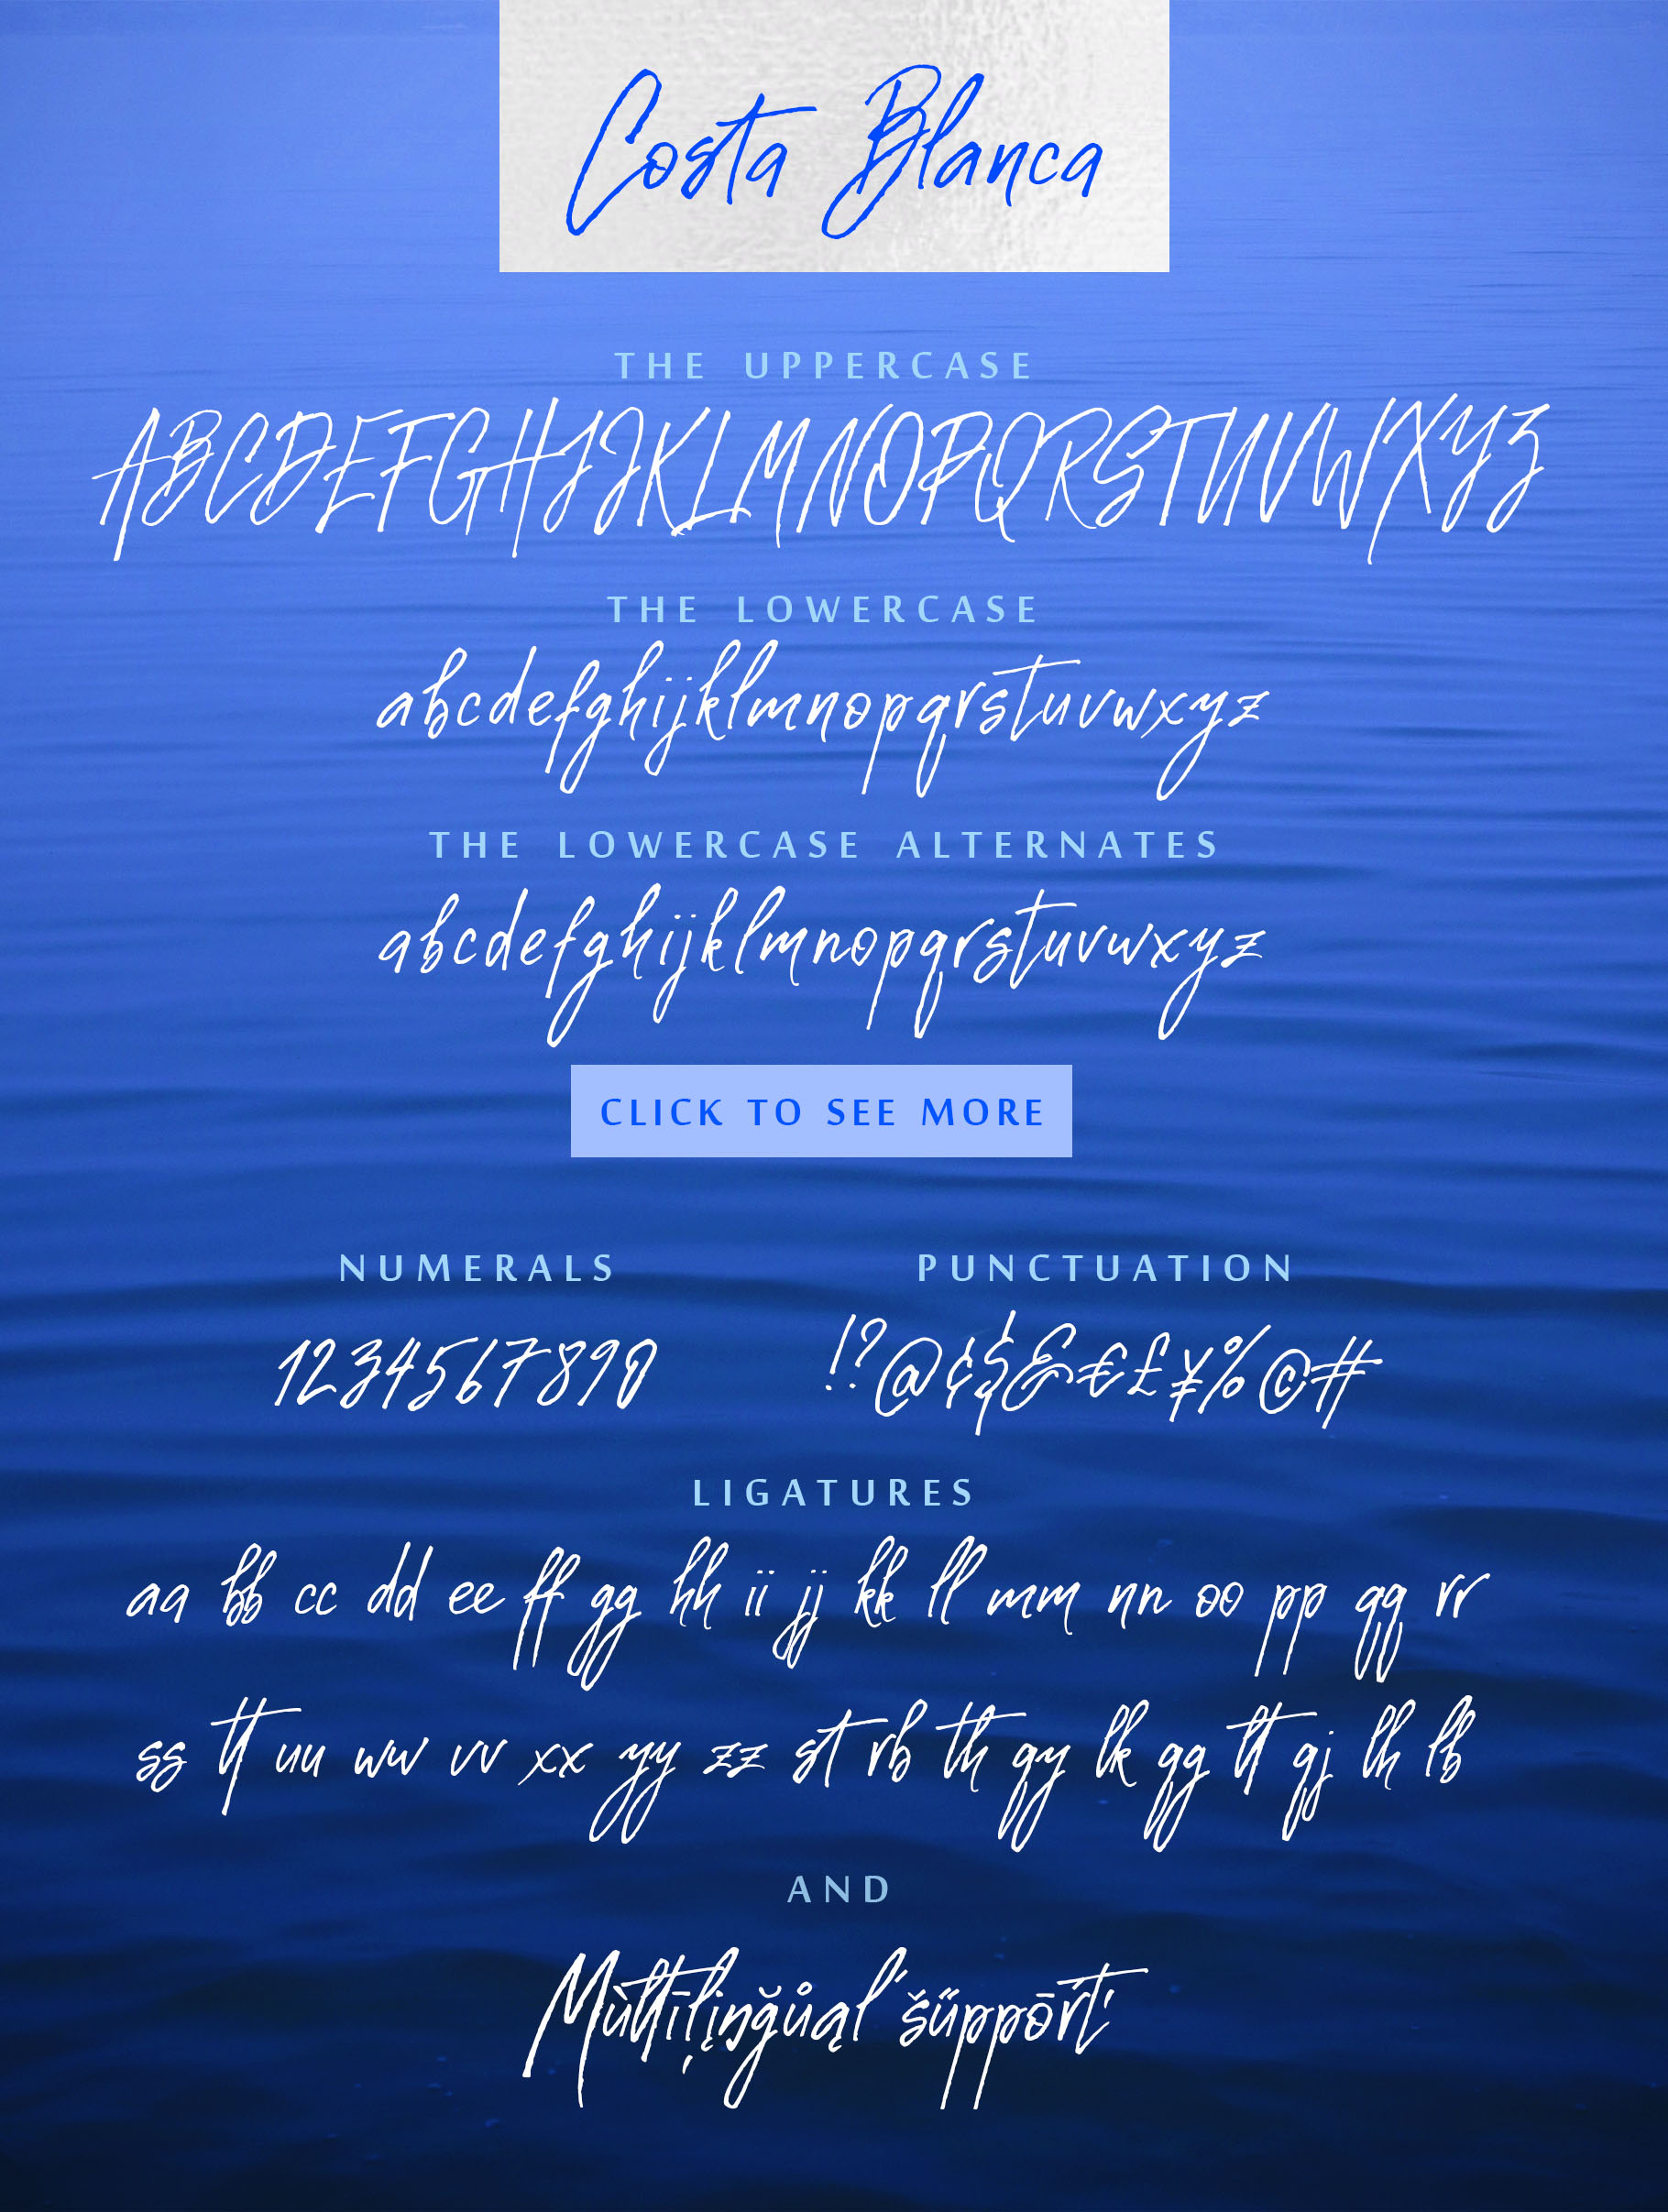 Costa Blanca
THE UPPERCASE
ABCDEFGHIJKLMNOPQRSTUVWXYZ
THE LOWERCASE
abcdefghijklmnopqrstuvwxyz
THE LOWERCASE ALTERNATES
abcdefghijklmnopqrstuvwxyz
CLICK TO SEE MORE
NUMERALS
1234567890
PUNCTUATION
!?@¢$&€£¥%©#
LIGATURES
aa bb cc dd ee ff gg hh ii jj kk ll mm nn oo pp qq rr
ss tt uu ww vv xx yy zz st rb th qy lk gg tt gj lh lb
AND